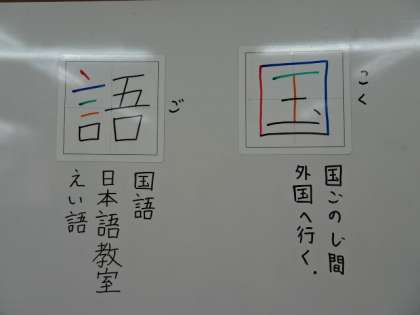 国
こく
国ごのじ間
外国へ行く.
語
ご
国語
日本語教室
えい語